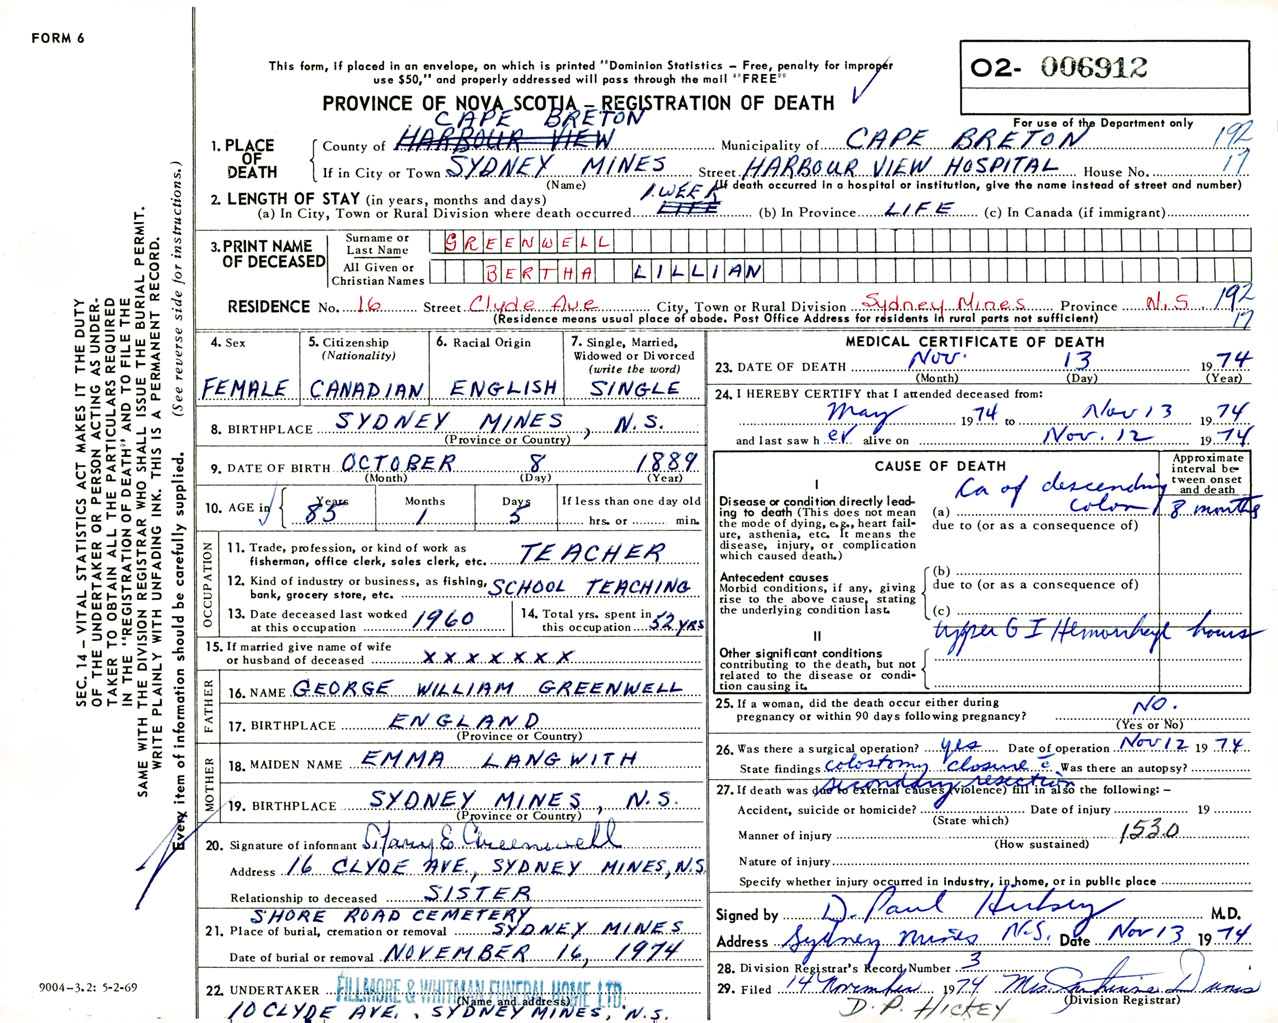 FORM 6
This form, if placed in an envelope, on which is printed "Dominion Statistics – Free, penalty for improper
use $50," and properly addressed will pass through the mail "FREE"
O2- 006912
PROVINCE OF NOVA SCOTIA – REGISTRATION OF DEATH
For use of the Department only
CAPE BRETON
1. PLACE OF DEATH
County of HARBOUR VIEW Municipality of CAPE BRETON 192
If in City or Town SYDNEY MINES Street HARBOUR VIEW HOSPITAL House No. 17
(Name) (If death occurred in a hospital or institution, give the name instead of street and number)
2. LENGTH OF STAY (in years, months and days) 1 WEEK
(a) In City, Town or Rural Division where death occurred LIFE (b) In Province LIFE (c) In Canada (if immigrant)
3. PRINT NAME OF DECEASED
Surname or Last Name GREENWELL
All Given or Christian Names BERTHA LILLIAN
RESIDENCE No. 16 Street Clyde Ave City, Town or Rural Division Sydney Mines Province N.S. 192
17
(Residence means usual place of abode. Post Office Address for residents in rural parts not sufficient)
4. Sex
FEMALE
5. Citizenship
(Nationality)
CANADIAN
6. Racial Origin
ENGLISH
7. Single, Married,
Widowed or Divorced
(write the word)
SINGLE
8. BIRTHPLACE SYDNEY MINES, N.S.
(Province or Country)
9. DATE OF BIRTH OCTOBER 8 1889
(Month) (Day) (Year)
10. AGE in Years Months Days If less than one day old
85 1 5 hrs. or min.
OCCUPATION
11. Trade, profession, or kind of work as
fisherman, office clerk, sales clerk, etc. TEACHER
12. Kind of industry or business, as fishing,
bank, grocery store, etc. SCHOOL TEACHING
13. Date deceased last worked
at this occupation 1960
14. Total yrs. spent in
this occupation 52 YRS
15. If married give name of wife
or husband of deceased X X X X X X X
FATHER
16. NAME GEORGE WILLIAM GREENWELL
17. BIRTHPLACE ENGLAND
(Province or Country)
MOTHER
18. MAIDEN NAME EMMA LANGWITH
19. BIRTHPLACE SYDNEY MINES, N.S.
(Province or Country)
20. Signature of informant Mary E Greenwell
Address 16 CLYDE AVE., SYDNEY MINES, N.S.
Relationship to deceased SISTER
SHORE ROAD CEMETERY
21. Place of burial, cremation or removal SYDNEY MINES
Date of burial or removal NOVEMBER 16, 1974
22. UNDERTAKER FILLMORE & WHITMAN FUNERAL HOME LTD.
(Name and address)
10 CLYDE AVE., SYDNEY MINES, N.S.
MEDICAL CERTIFICATE OF DEATH
23. DATE OF DEATH Nov. 13 1974
(Month) (Day) (Year)
24. I HEREBY CERTIFY that I attended deceased from:
May 1974 to Nov 13 1974
and last saw her alive on Nov. 12 1974
CAUSE OF DEATH
Approximate
interval be-
tween onset
and death
I
Disease or condition directly lead-
ing to death (This does not mean
the mode of dying, e.g., heart fail-
ure, asthenia, etc. It means the
disease, injury, or complication
which caused death.)
Ca of descending
(a) colon 8 months
due to (or as a consequence of)
Antecedent causes
Morbid conditions, if any, giving
rise to the above cause, stating
the underlying condition last.
(b)
due to (or as a consequence of)
(c)
II
Other significant conditions
contributing to the death, but not
related to the disease or condi-
tion causing it.
Upper G I Hemorrhage hours
25. If a woman, did the death occur either during
pregnancy or within 90 days following pregnancy? NO.
(Yes or No)
26. Was there a surgical operation? yes Date of operation Nov 12 1974
State findings colostomy closure c̄ Was there an autopsy?
secondary resection
27. If death was due to external causes (violence) fill in also the following: –
Accident, suicide or homicide? Date of injury 19
(State which)
Manner of injury 1530
(How sustained)
Nature of injury
Specify whether injury occurred in Industry, in home, or in public place
Signed by D. Paul Hickey M.D.
Address Sydney Mines N.S. Date Nov 13 1974
28. Division Registrar's Record Number 3
29. Filed 14 November 1974 Mrs.
(Division Registrar)
D. P. HICKEY
SEC. 14 – VITAL STATISTICS ACT MAKES IT THE DUTY
OF THE UNDERTAKER OR PERSON ACTING AS UNDER-
TAKER TO OBTAIN ALL THE PARTICULARS REQUIRED
IN THE "REGISTRATION OF DEATH" AND TO FILE THE
SAME WITH THE DIVISION REGISTRAR WHO SHALL ISSUE THE BURIAL PERMIT.
WRITE PLAINLY WITH UNFADING INK. THIS IS A PERMANENT RECORD.
Every item of information should be carefully supplied. (See reverse side for instructions.)
9004-3.2: 5-2-69